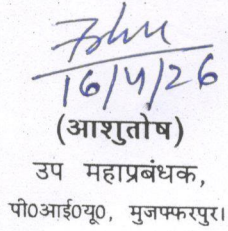 16/4/26
(आशुतोष)
उप महाप्रबंधक,
पी0आई0यू0, मुजफ्फरपुर।